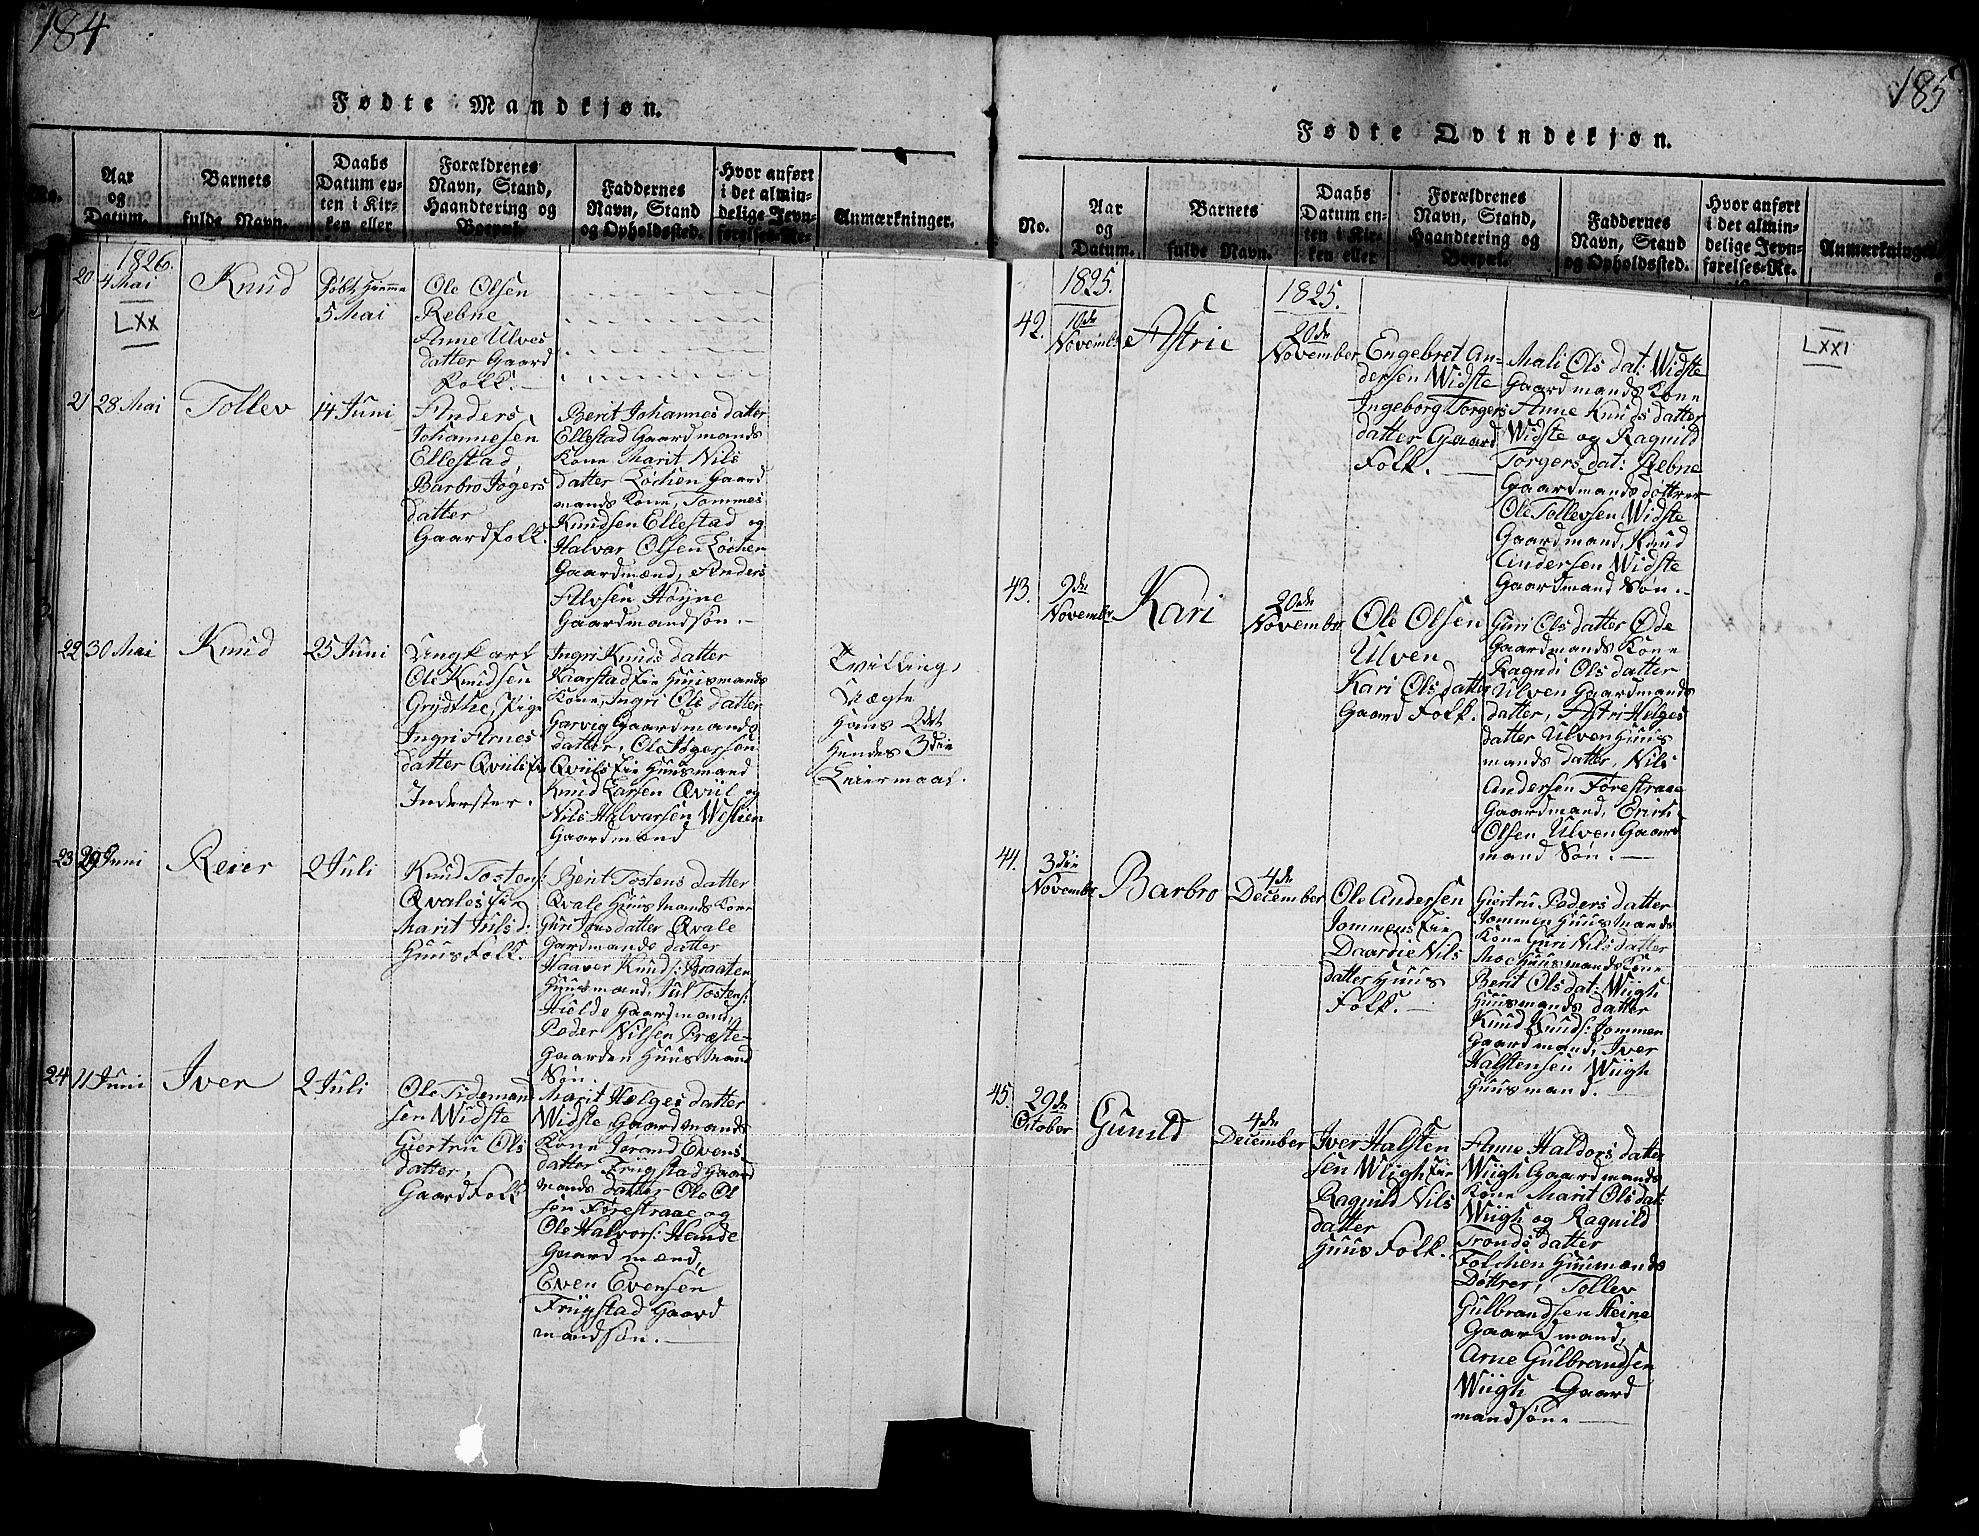 184
Fødte Mandkjøn.
No.
Aar
og
Datum.
Barnets
fulde Navn.
Daabs
Datum en-
ten i Kir-
ken eller
Forældrenes
Navn, Stand,
Haandtering og
Boepæl.
Faddernes
Navn, Stand
og Opholdssted.
Hvor anført
i det almin-
delige Jevn-
førelses-Re-
Anmærkninger.
1826.
20
4 Mai
LXX
Knud
Døbt Hiemme
5 Mai
Ole Olsen
Rebne
Anne Ulves
datter Gaard
Folk.
21
28 Mai
Tollev
14 Juni
Anders
Johannesen
Ellestad
Barbro Jøgers
datter
Gaardfolk.
Berit Johannes datter
Ellestad Gaardmands
Kone Marit Nils
datter Løchen Gaard
mands Kone, Tommes
Knudsen Ellestad og
Halvar Olsen Løchen
Gaardmænd, Anders
Alvsen Høyne
Gaardmandsøn.
22
30 Mai
Knud
25 Juni
Ungkarl
Ole Knudsen
Grydthe, Pige
Ingri Arnes
datter Qviils
Inderster.
Ingri Knuds datter
Kaarstad Eie Huusmands
Kone, Ingri Ols datter
Garvig Gaardmands
datter, Ole Jøgersen
Qviils Eie Huusmand
Knud Larsen Qviil og
Nils Halvarsen Westien
Gaardmænd
Tvilling,
Uægte
Hans 2det
Hendes 3die
Leiermaal.
23
29 Juni
Reier
2 Juli
Knud Tostens:
Qvales Eie
Marit Juls d:
Huus Folk.
Berit Tostens datter
Qvale Huusmands Kone
Guri Jens datter Qvale
Gardmands datter
Haaver Knuds: Braaten
Huusmand, Jul Tostens:
Hielde Gaardmand,
Peder Nilsen Præste-
Gaarden Huusmand
Søn.
24
11 Juni
Iver
2 Juli
Ole Tidemand
sen Widste
Giertru Ols
datter,
Gaard Folk
Marit Helges datter
Widste Gaardmands
Kone Jørand Evens
datter Frugstad Gaard
mands datter Ole Ol
sen Forestraae og
Ole Halvors: Hande
Gaardmænd,
Even Evensen
Frugstad Gaard
mandsøn.
185
Fødte Qvindekjøn.
No.
Aar
og
Datum.
Barnets
fulde Navn.
Daabs
Datum en-
ten i Kir-
ken eller
Forældrenes
Navn, Stand,
Haandtering og
Boepæl.
Faddernes
Navn, Stand
og Opholdssted.
Hvor anført
i det almin-
delige Jevn-
førelses-Re.
Anmærkninger.
1825.
1825.
LXXI
42.
10de
November
Astrie
20de
November
Engebret An-
dersen Widste
Ingeborg Torgers
datter Gaard
Folk.
Mali Ols dat: Widste
Gaardmands Kone
Anne Knuds datter
Widste og Ragnild
Torgers dat: Rebne
Gaardmands døttrer
Ole Tollevsen Widste
Gaardmand, Knud
Andersen Widste
Gaardmand Søn.
43.
9de
November
Kari
20de
November
Ole Olsen
Ulven
Kari Ols datter
Gaard Folk.
Guri Ols datter Øde
Gaardmands Kone
Ragndi Ols datter
Ulven Gaardmands
datter, Astri Helges
datter Ulven Huus
mands datter, Nils
Andersen Forestraae
Gaardmand, Erich
Olsen Ulven Gaard
mand Søn.
44.
3die
November
Barbro
4de
December
Ole Andersen
Jommens Eie
Daardie Nils
datter Huus
Folk.
Giertru Peders datter
Jommen Huusmands
Kone Guri Nils datter
Moe Huusmands Kone
Berit Ols dat: Wiigh
Huusmands datter
Knud Knuds: Jommen
Gaardmand, Iver
Halstensen Wiigh
Huusmand.
45.
29de
October
Gunild
4de
December
Iver Halsten
sen Wiigh Eie
Ragnild Nils
datter
Huus Folk.
Anne Haldors datter
Wiigh Gaardmands
Kone Marit Ols dat:
Wiigh og Ragnild
Tronds datter
Folchen Huusmænds
Døttrer, Tollev
Gulbrandsen Heine
Gaardmand,
Arne Gulbrandsen
Wiigh Gaard
mandsøn.